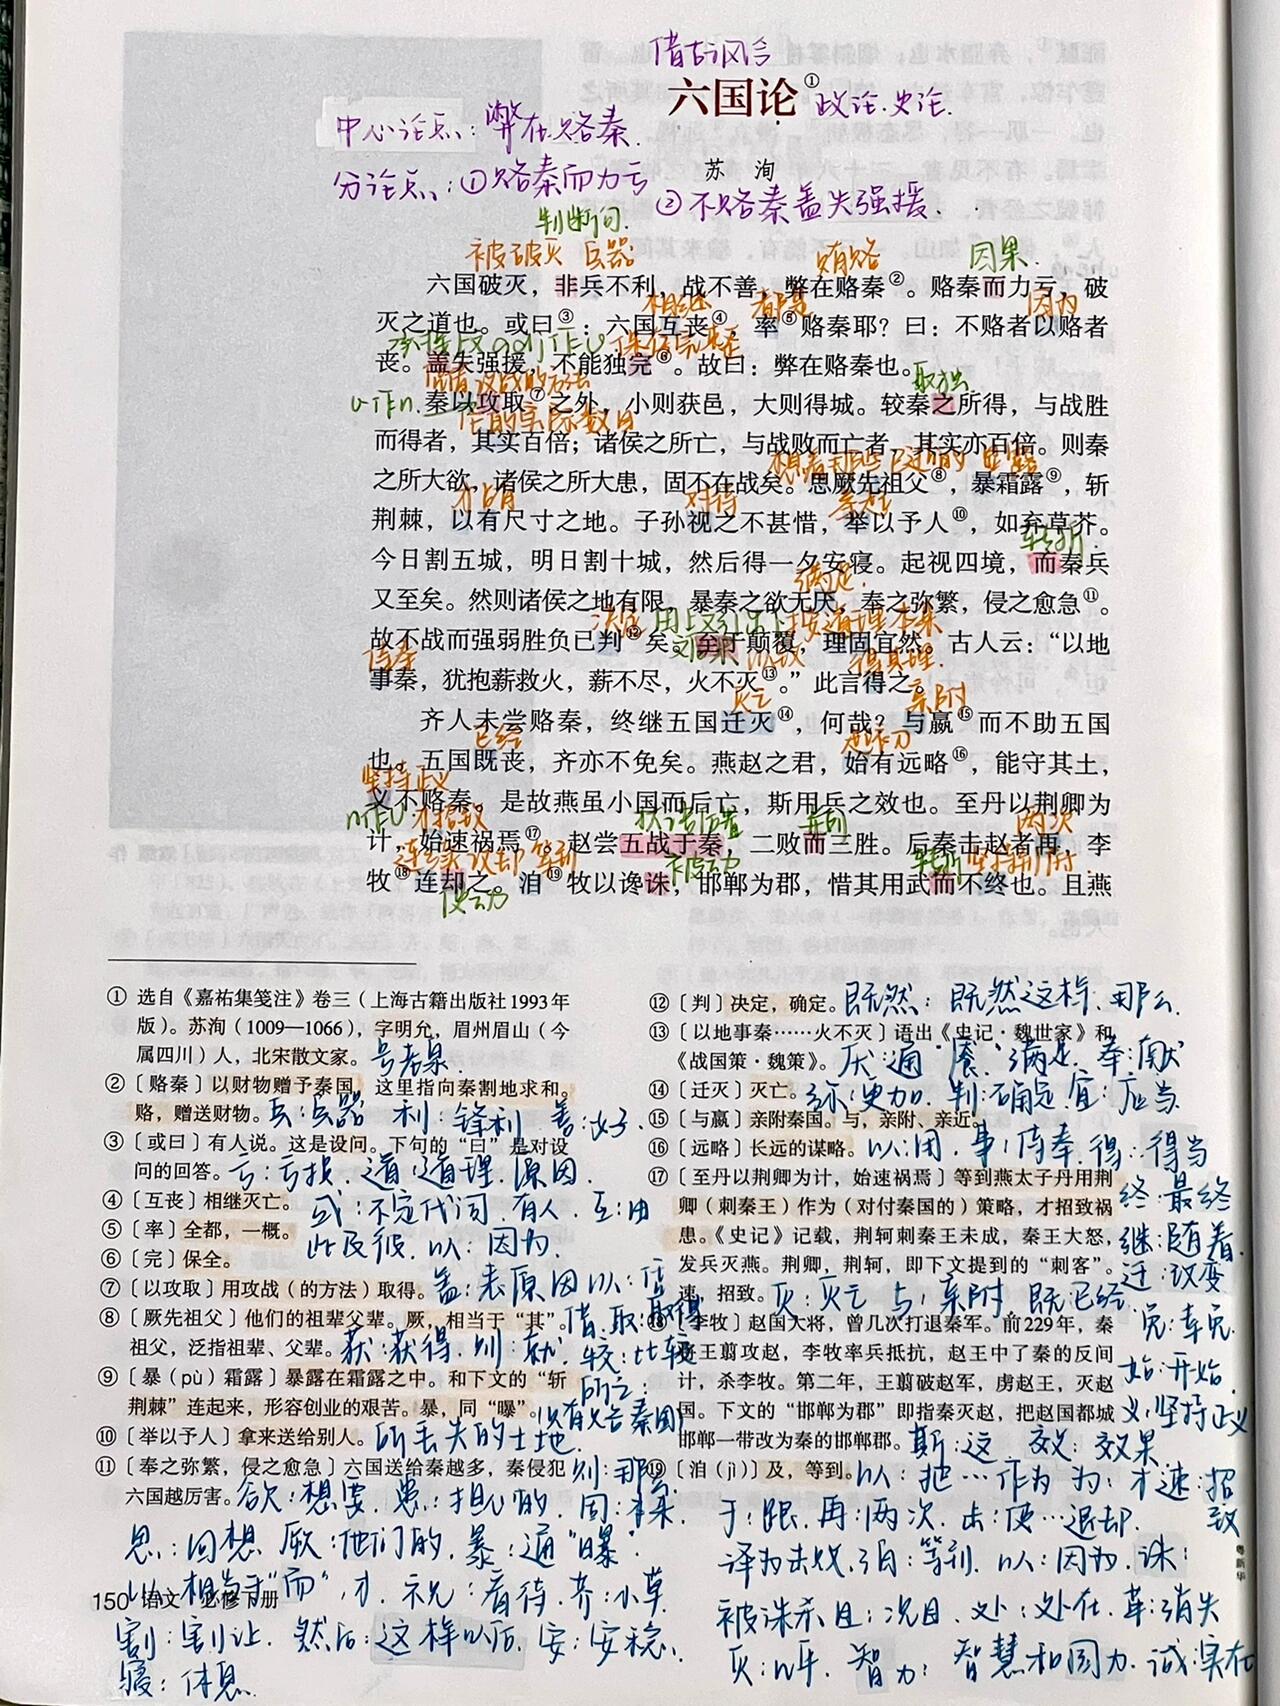 借古讽今
六国论①
政论.史论.
中心论点：弊在赂秦.
苏 洵
分论点：①赂秦而力亏
②不赂秦盖失强援.
判断句.
被破灭 兵器 贿赂 因果.
六国破灭，非兵不利，战不善，弊在赂秦②。赂秦而力亏，破
相继 都是 因为
灭之道也。或曰③：六国互丧④，率⑤赂秦耶？曰：不赂者以赂者
保存完整
丧。盖失强援，不能独完⑥。故曰：弊在赂秦也。
取独
v作n.
秦以攻取⑦之外，小则获邑，大则得城。较秦之所得，与战胜
它的实际数目
而得者，其实百倍；诸侯之所亡，与战败而亡者，其实亦百倍。则秦
之所大欲，诸侯之所大患，固不在战矣。思厥先祖父⑧，暴霜露⑨，斩
才占有 对待 拿起
荆棘，以有尺寸之地。子孙视之不甚惜，举以予人⑩，如弃草芥。
转折.
今日割五城，明日割十城，然后得一夕安寝。起视四境，而秦兵
满足.
又至矣。然则诸侯之地有限，暴秦之欲无厌，奉之弥繁，侵之愈急⑪。
决定
故不战而强弱胜负已判⑫矣。至于颠覆，理固宜然。古人云：“以地
侍奉
事秦，犹抱薪救火，薪不尽，火不灭⑬。”此言得之。
灭亡 亲附
齐人未尝赂秦，终继五国迁灭⑭，何哉？与嬴⑮而不助五国
已经 起初
也。五国既丧，齐亦不免矣。燕赵之君，始有远略⑯，能守其土，
坚持正义
义不赂秦。是故燕虽小国而后亡，斯用兵之效也。至丹以荆卿为
n作v 才招致 状语后置 并列 两次
计，始速祸焉⑰。赵尝五战于秦，二败而三胜。后秦击赵者再，李
等到 被动 转折
牧⑱连却之。洎⑲牧以谗诛，邯郸为郡，惜其用武而不终也。且燕
使动
① 选自《嘉祐集笺注》卷三（上海古籍出版社1993年
版）。苏洵（1009—1066），字明允，眉州眉山（今
属四川）人，北宋散文家。号老泉
② 〔赂秦〕以财物赠予秦国，这里指向秦割地求和。
赂，赠送财物。兵：兵器 利：锋利 善：好.
③ 〔或曰〕有人说。这是设问。下句的“曰”是对设
问的回答。亏：亏损. 道：道理. 原因.
④ 〔互丧〕相继灭亡。或：不定代词，有人. 互：由
⑤ 〔率〕全都，一概。此及彼. 以：因为.
⑥ 〔完〕保全。
⑦ 〔以攻取〕用攻战（的方法）取得。盖：表原因 以：凭
借. 取：取得
⑧ 〔厥先祖父〕他们的祖辈父辈。厥，相当于“其”。
祖父，泛指祖辈、父辈。获：获得. 则：就. 较：比较
⑨ 〔暴（pù）霜露〕暴露在霜露之中。和下文的“斩
荆棘”连起来，形容创业的艰苦。暴，同“曝”。
⑩ 〔举以予人〕拿来送给别人。所丢失的土地.
⑪ 〔奉之弥繁，侵之愈急〕六国送给秦越多，秦侵犯
则：那么.
六国越厉害。欲：想要 患：担心的. 固：本来
思：回想 厥：他们的. 暴：通“曝”.
以：相当于“而”，才. 视：看待. 芥：小草
150 语文 必修 下册
割：割让. 然后：这样以后. 安：安稳.
寝：休息
⑫ 〔判〕决定，确定。既然：既然这样，那么
⑬ 〔以地事秦……火不灭〕语出《史记·魏世家》和
《战国策·魏策》。厌：通“餍”满足. 奉：献
⑭ 〔迁灭〕灭亡。弥：更加. 判：确定. 宜：应当
⑮ 〔与嬴〕亲附秦国。与，亲附、亲近。
⑯ 〔远略〕长远的谋略。以：用. 事：侍奉. 得：得当
⑰ 〔至丹以荆卿为计，始速祸焉〕等到燕太子丹用荆
卿（刺秦王）作为（对付秦国的）策略，才招致祸
患。《史记》记载，荆轲刺秦王未成，秦王大怒，
发兵灭燕。荆卿，荆轲，即下文提到的“刺客”。
速，招致。灭：灭亡 与：亲附 既：已经.
终：最终
继：随着.
迁：改变
免：幸免.
始：开始.
义：坚持正义
⑱ 〔李牧〕赵国大将，曾几次打退秦军。前229年，秦
将王翦攻赵，李牧率兵抵抗，赵王中了秦的反间
计，杀李牧。第二年，王翦破赵军，虏赵王，灭赵
国。下文的“邯郸为郡”即指秦灭赵，把赵国都城
邯郸一带改为秦的邯郸郡。斯：这 效：效果
⑲ 〔洎（jì）〕及，等到。以：把…作为 为： 才 速：招
致
于：跟. 再：两次. 却：使…退却.
洎：等到. 以：因为. 诛：
被诛杀 且：况且. 处：处在. 革：消失
智力：智慧和国力. 诚：实在